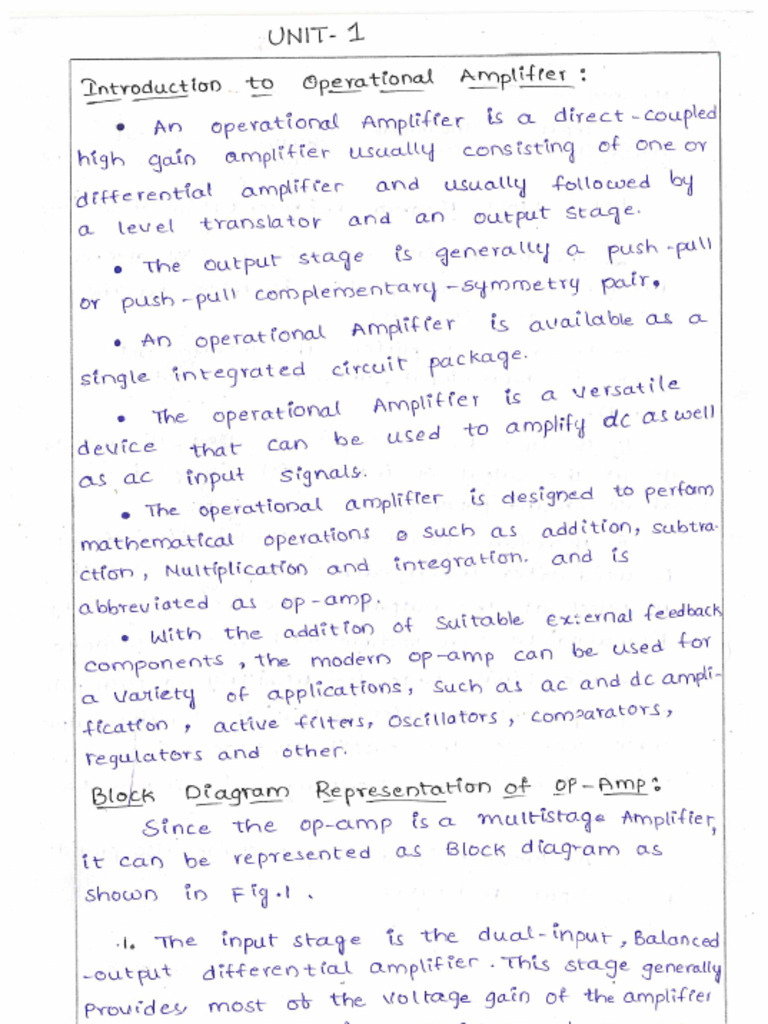 UNIT-1
Introduction to Operational Amplifier :
• An operational Amplifier is a direct-coupled
high gain amplifier usually consisting of one or
differential amplifier and usually followed by
a level translator and an output stage.
• The output stage is generally a push-pull
or push-pull complementary-symmetry pair.
• An operational Amplifier is available as a
single integrated circuit package.
• The operational Amplifier is a versatile
device that can be used to amplify dc as well
as ac input signals.
• The operational amplifier is designed to perfom
mathematical operations such as addition, subtra-
ction, Multiplication and integration. and is
abbreviated as op-amp.
• With the addition of suitable external feedback
components, the modern op-amp can be used for
a variety of applications, such as ac and dc ampli-
fication, active filters, oscillators, comparators,
regulators and other.
Block Diagram Representation of OP-Amp:
Since the op-amp is a multistage Amplifier,
it can be represented as Block diagram as
shown in Fig.1.
1. The input stage is the dual-input, Balanced
-output differential amplifier. This stage generally
Provides most of the voltage gain of the amplifier